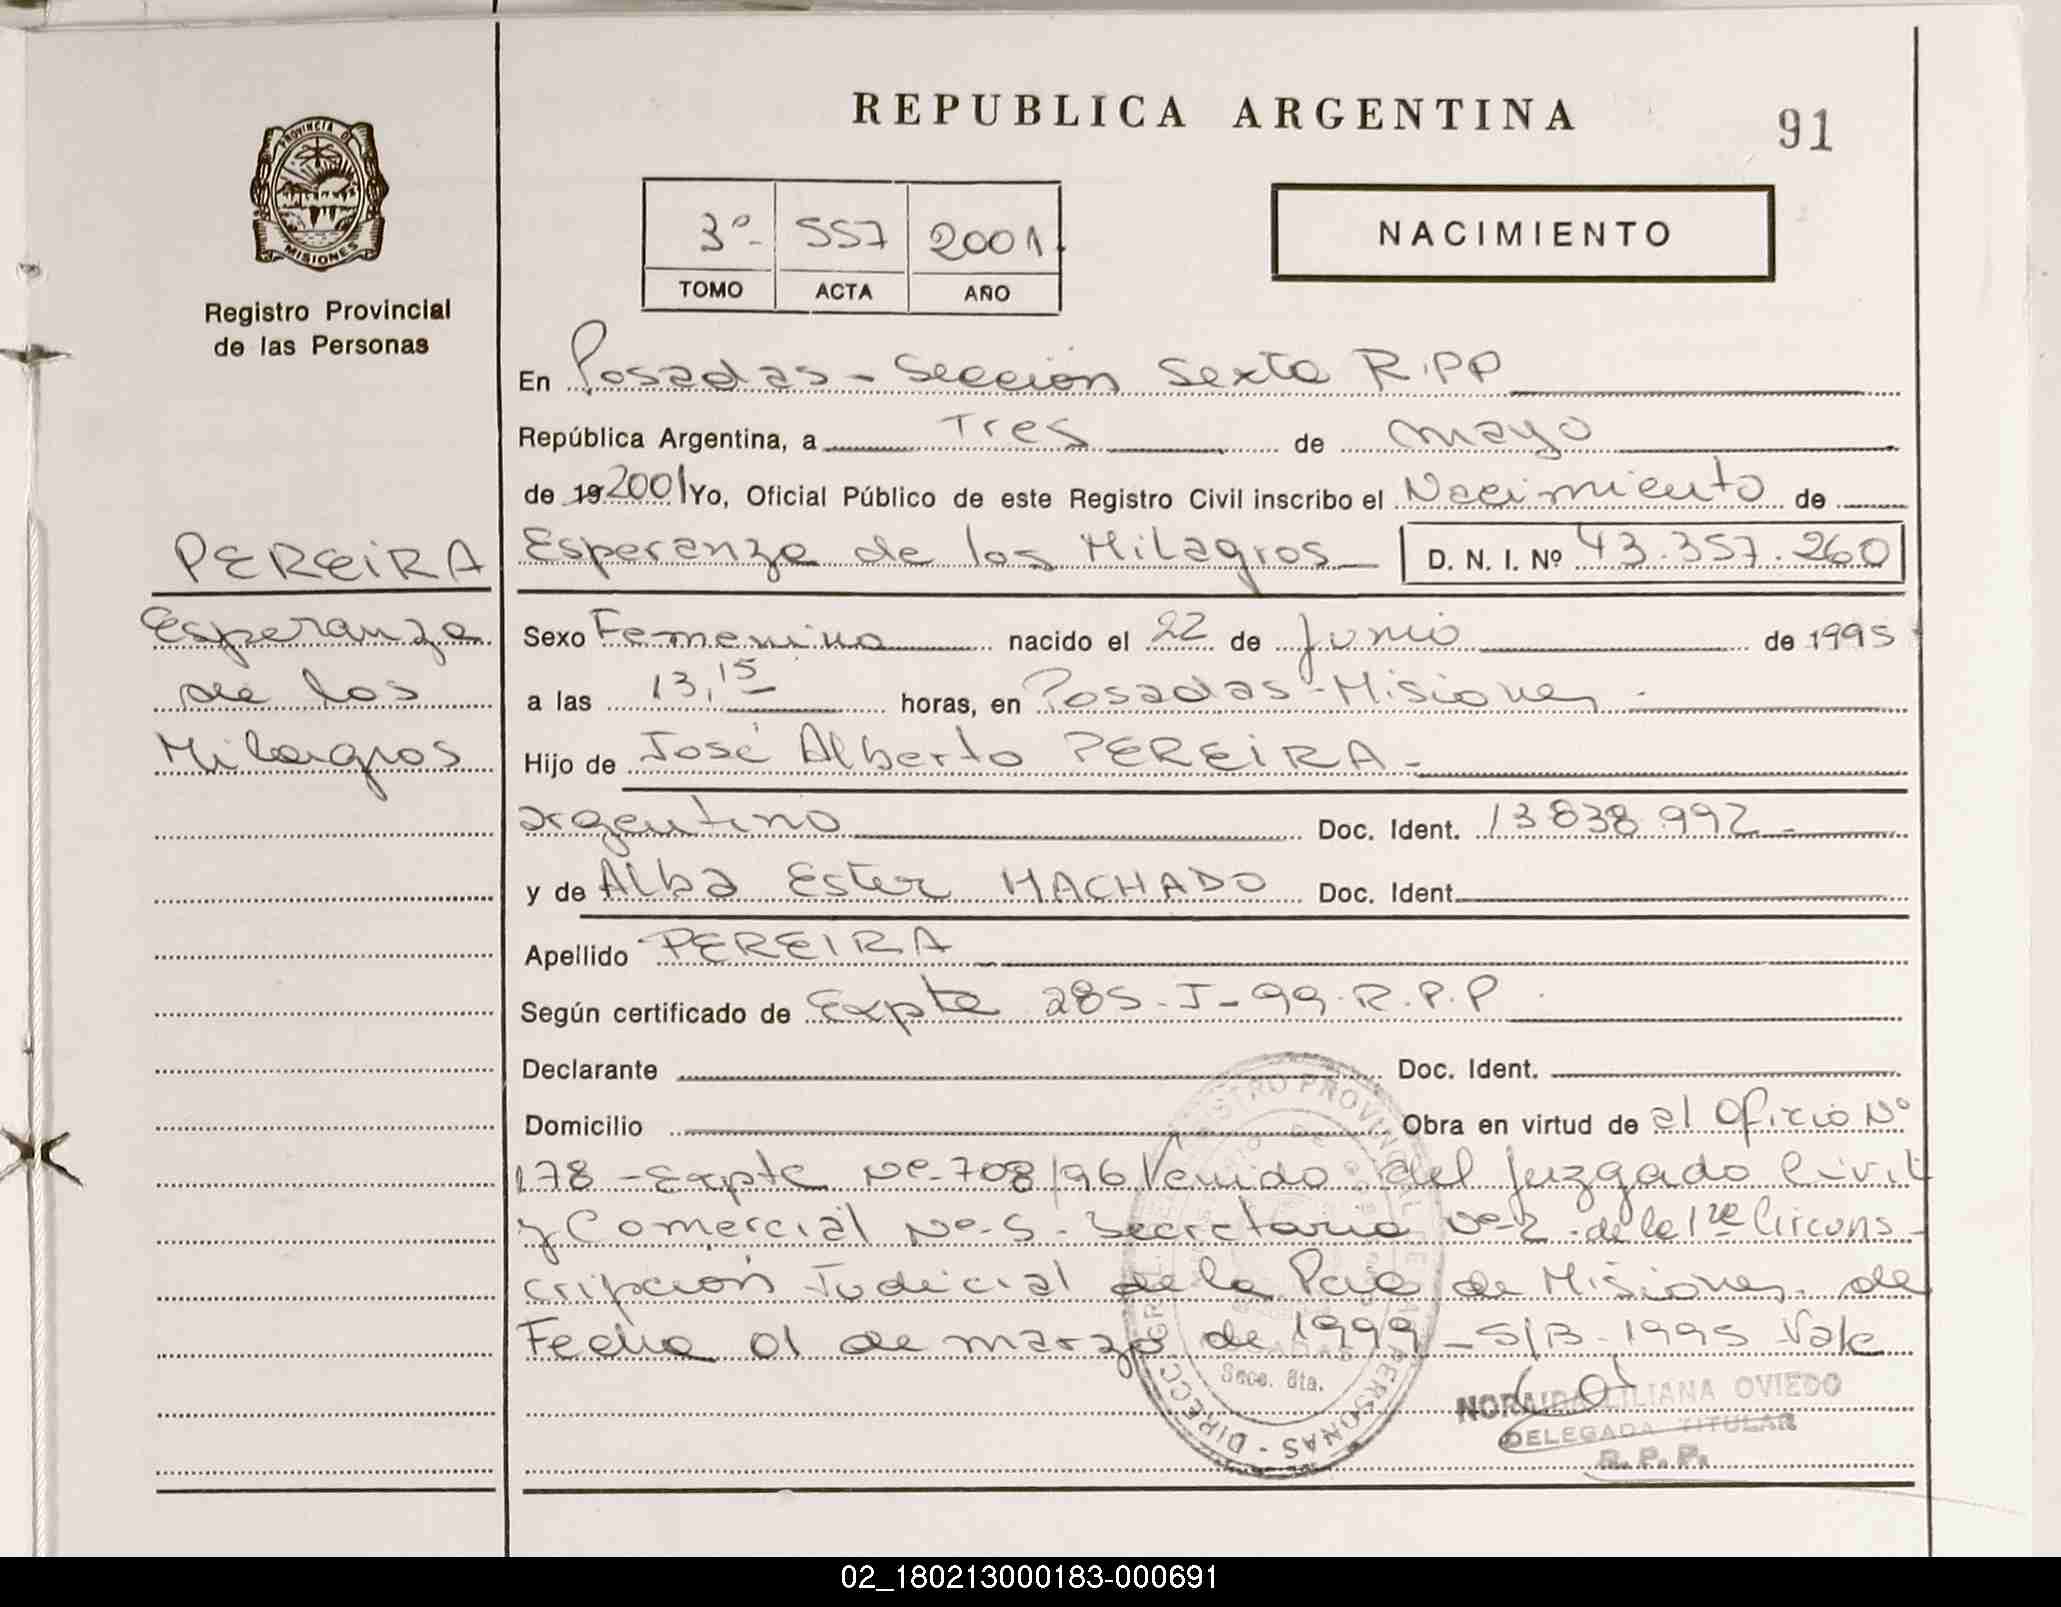 REPUBLICA ARGENTINA
91
PROVINCIA DE
MISIONES
Registro Provincial
de las Personas
3º- 557 2001
TOMO ACTA AÑO
NACIMIENTO
En Posadas - Sección Sexta R.PP
República Argentina, a Tres de mayo
de 19 2001 Yo, Oficial Público de este Registro Civil inscribo el Nacimiento de
Esperanza de los Milagros D. N. I. Nº 43.357.260
PEREIRA
Esperanza
de los
Milagros
Sexo Femenino nacido el 22 de Junio de 1995
a las 13,15 horas, en Posadas - Misiones -
Hijo de José Alberto PEREIRA -
argentino Doc. Ident. 13838.992 -
y de Alba Ester MACHADO Doc. Ident.
Apellido PEREIRA
Según certificado de Expte 285-J-99-R.P.P
Declarante Doc. Ident.
Domicilio Obra en virtud de al Oficio Nº
178 - Expte Nº-708/96 Venido del Juzgado Civil
y Comercial Nº-5- Secretaria Nº-2-de la 1ra Circuns-
cripción Judicial de la Pcia de Misiones. de
Fecha 01 de marzo de 1999 - S/B-1995 Vale
Secc. 6ta.
NORAIDA LILIANA OVIEDO
DELEGADA TITULAR
R. P. P.
02_180213000183-000691